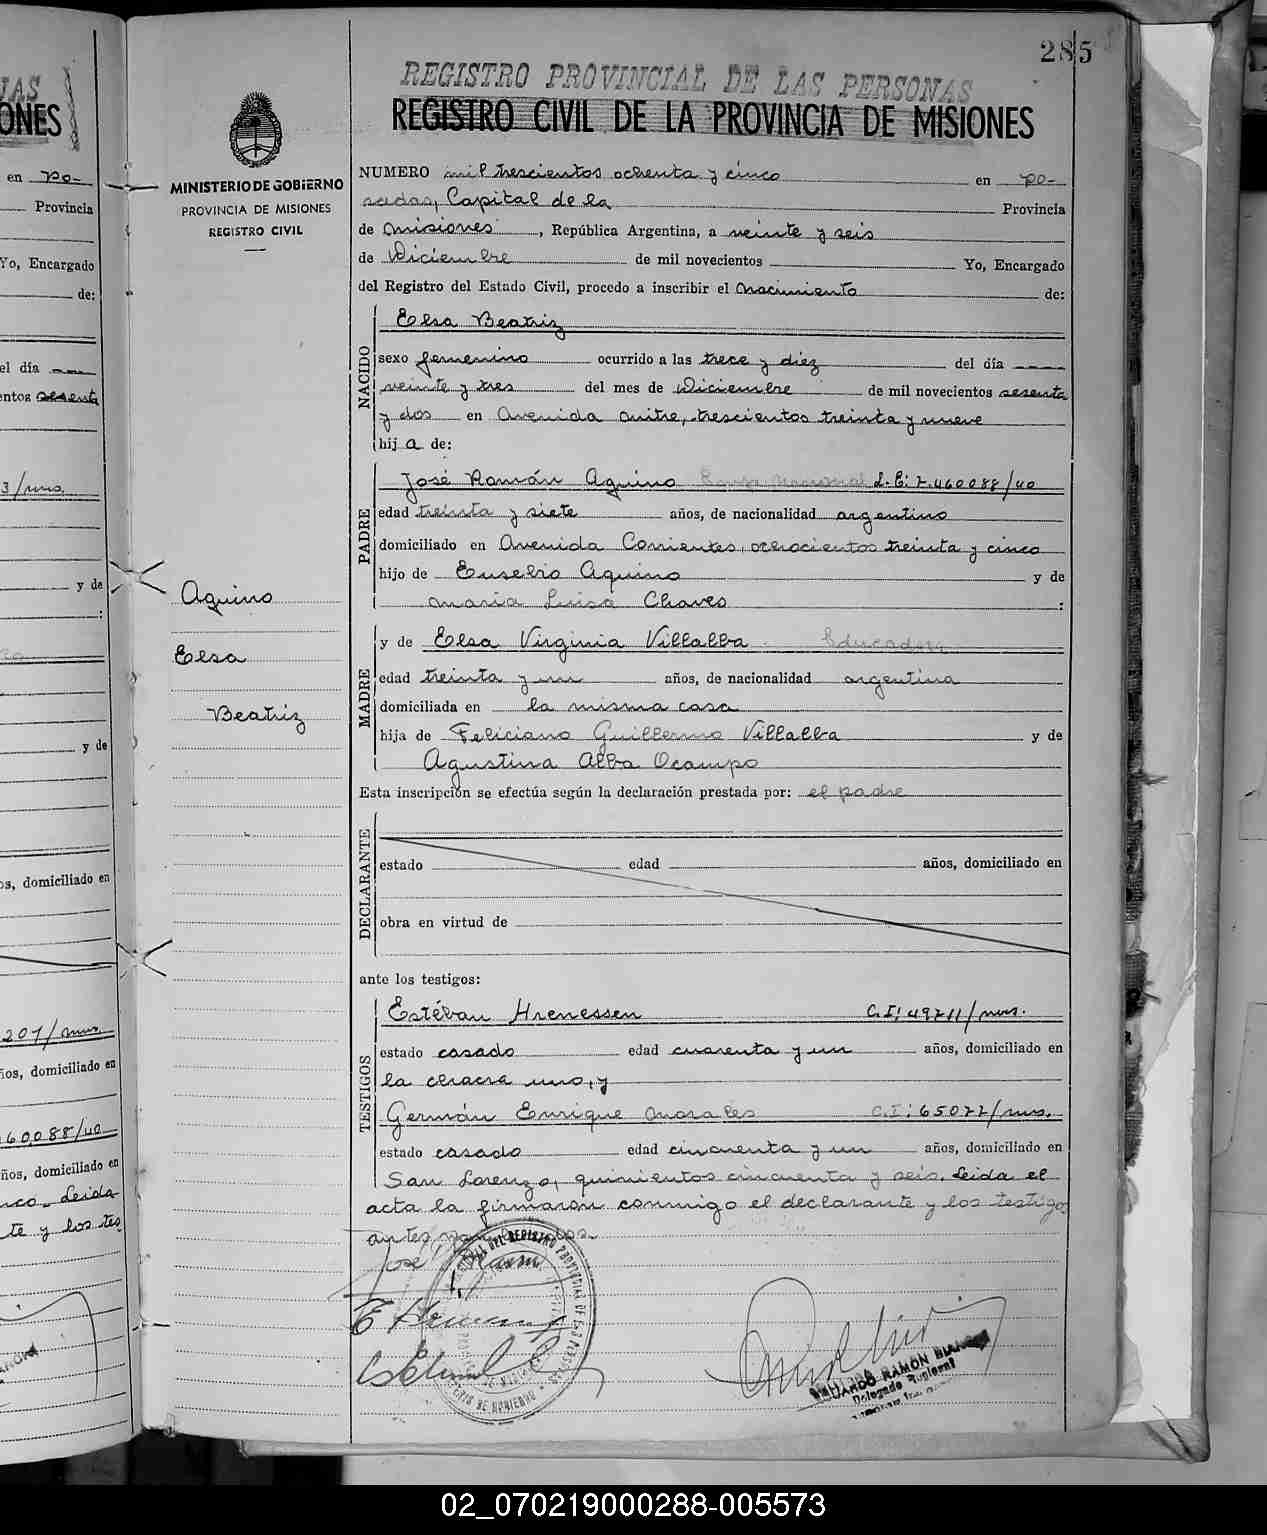 285
REGISTRO PROVINCIAL DE LAS PERSONAS
REGISTRO CIVIL DE LA PROVINCIA DE MISIONES
MINISTERIO DE GOBIERNO
PROVINCIA DE MISIONES
REGISTRO CIVIL
NUMERO mil trescientos ochenta y cinco en Po-
sadas, Capital de la Provincia
de Misiones, República Argentina, a veinte y seis
de Diciembre de mil novecientos Yo, Encargado
del Registro del Estado Civil, procedo a inscribir el Nacimiento de:
NACIDO
Elsa Beatriz
sexo femenino ocurrido a las trece y diez del día
veinte y tres del mes de Diciembre de mil novecientos sesenta
y dos en Avenida Mitre, trescientos treinta y nueve
hija de:
PADRE
José Ramón Aquino L.E: 7.460088/40
edad treinta y siete años, de nacionalidad argentino
domiciliado en Avenida Corrientes, ochocientos treinta y cinco
hijo de Eusebio Aquino y de
Maria Luisa Chaves :
Aquino
Elsa
Beatriz
MADRE
y de Elsa Virginia Villalba Educadora
edad treinta y un años, de nacionalidad argentina
domiciliada en la misma casa
hija de Feliciano Guillermo Villalba y de
Agustina Alba Ocampo
Esta inscripción se efectúa según la declaración prestada por: el padre
DECLARANTE
estado edad años, domiciliado en
obra en virtud de
ante los testigos:
TESTIGOS
Estéban Hrenessen C.I: 49711/mns.
estado casado edad cuarenta y un años, domiciliado en
la chacra uno, y
Germán Enrique Morales C.I: 65077/mns.
estado casado edad cincuenta y un años, domiciliado en
San Lorenzo, quinientos cincuenta y seis. Leida el
acta la firmaron conmigo el declarante y los testigos
antes
José
EDUARDO RAMON
Delegado Regional
02_070219000288-005573